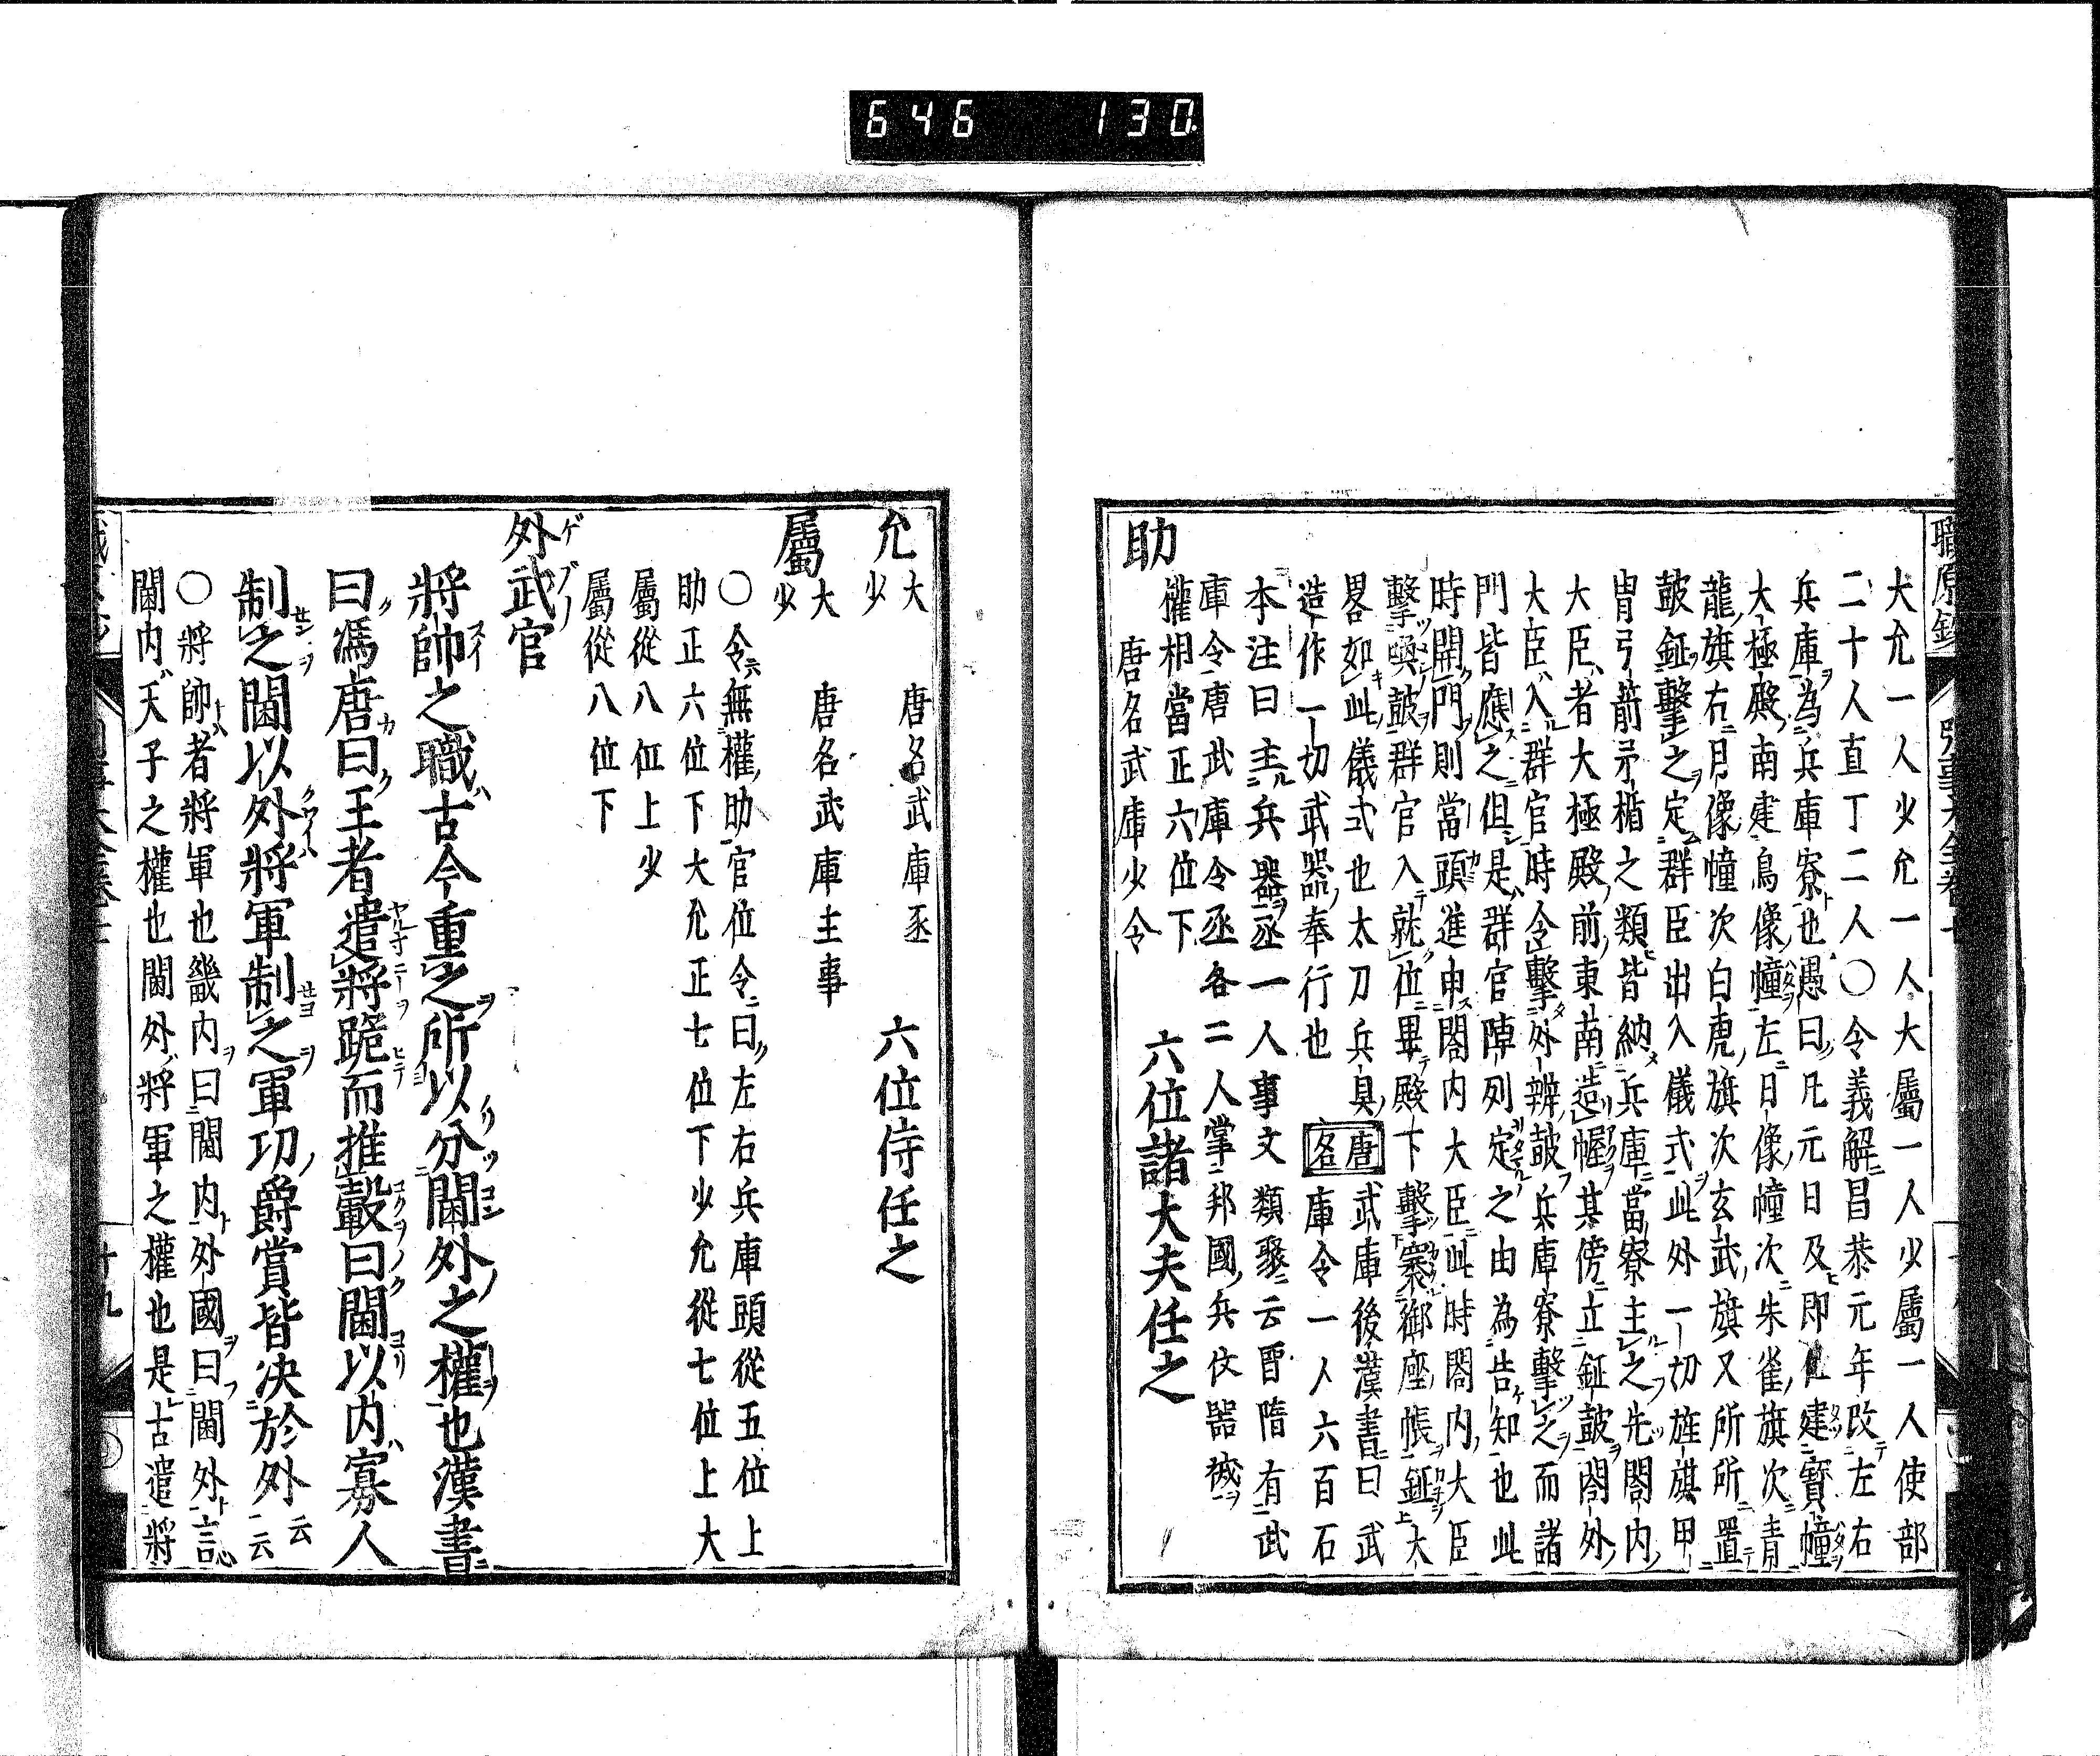 646 130
職原鈔
大允一人少允一人大屬一人少屬一人使部
二十人直丁二人〇令義解昌恭元年改左右
兵庫為兵庫寮也愚曰凡元日及即位建寶幢
大極殿南建烏像幢左日像幢次朱雀旗次青
龍旗右月像幢次白虎旗次玄武旗又所所置
鼓鉦擊之定群臣出入儀式此外一切旌旗甲
冑弓箭矛楯之類皆納兵庫當寮主之先閤内
大臣者大極殿前東南造幄其傍立鉦鼓閤外
大臣入群官時令擊外辨鼓兵庫寮擊之而諸
門皆應之但是群官陣列定之由為告知也此
時開門則當頭進申閤内大臣此時閤内大臣
擊喚鼓群官入就位畢殿下擊褰御座帳鉦大
畧如此儀式也太刀兵具唐武庫後漢書曰武
造作一切武器奉行也 名庫令一人六百石
本注曰主兵器丞一人事文類聚云晉隋有武
庫令唐武庫令丞各二人掌邦國兵仗器械
助 權相當正六位下 六位諸大夫任之
唐名武庫少令
允 大少 唐名武庫丞 六位侍任之
屬 大少 唐名武庫主事
〇令無權助官位令曰左右兵庫頭從五位上
助正六位下大允正七位下少允從七位上大
屬從八位上少
屬從八位下
外武官
將帥之職古今重之所以分閫外之權也漢書
曰馮唐曰王者遣將跪而推轂曰閫以内寡人
制之閫以外將軍制之軍功爵賞皆決於外云云
〇將帥者將軍也畿内曰閫内外國曰閫外言
閫内天子之權也閫外將軍之權也是古遣將
十九